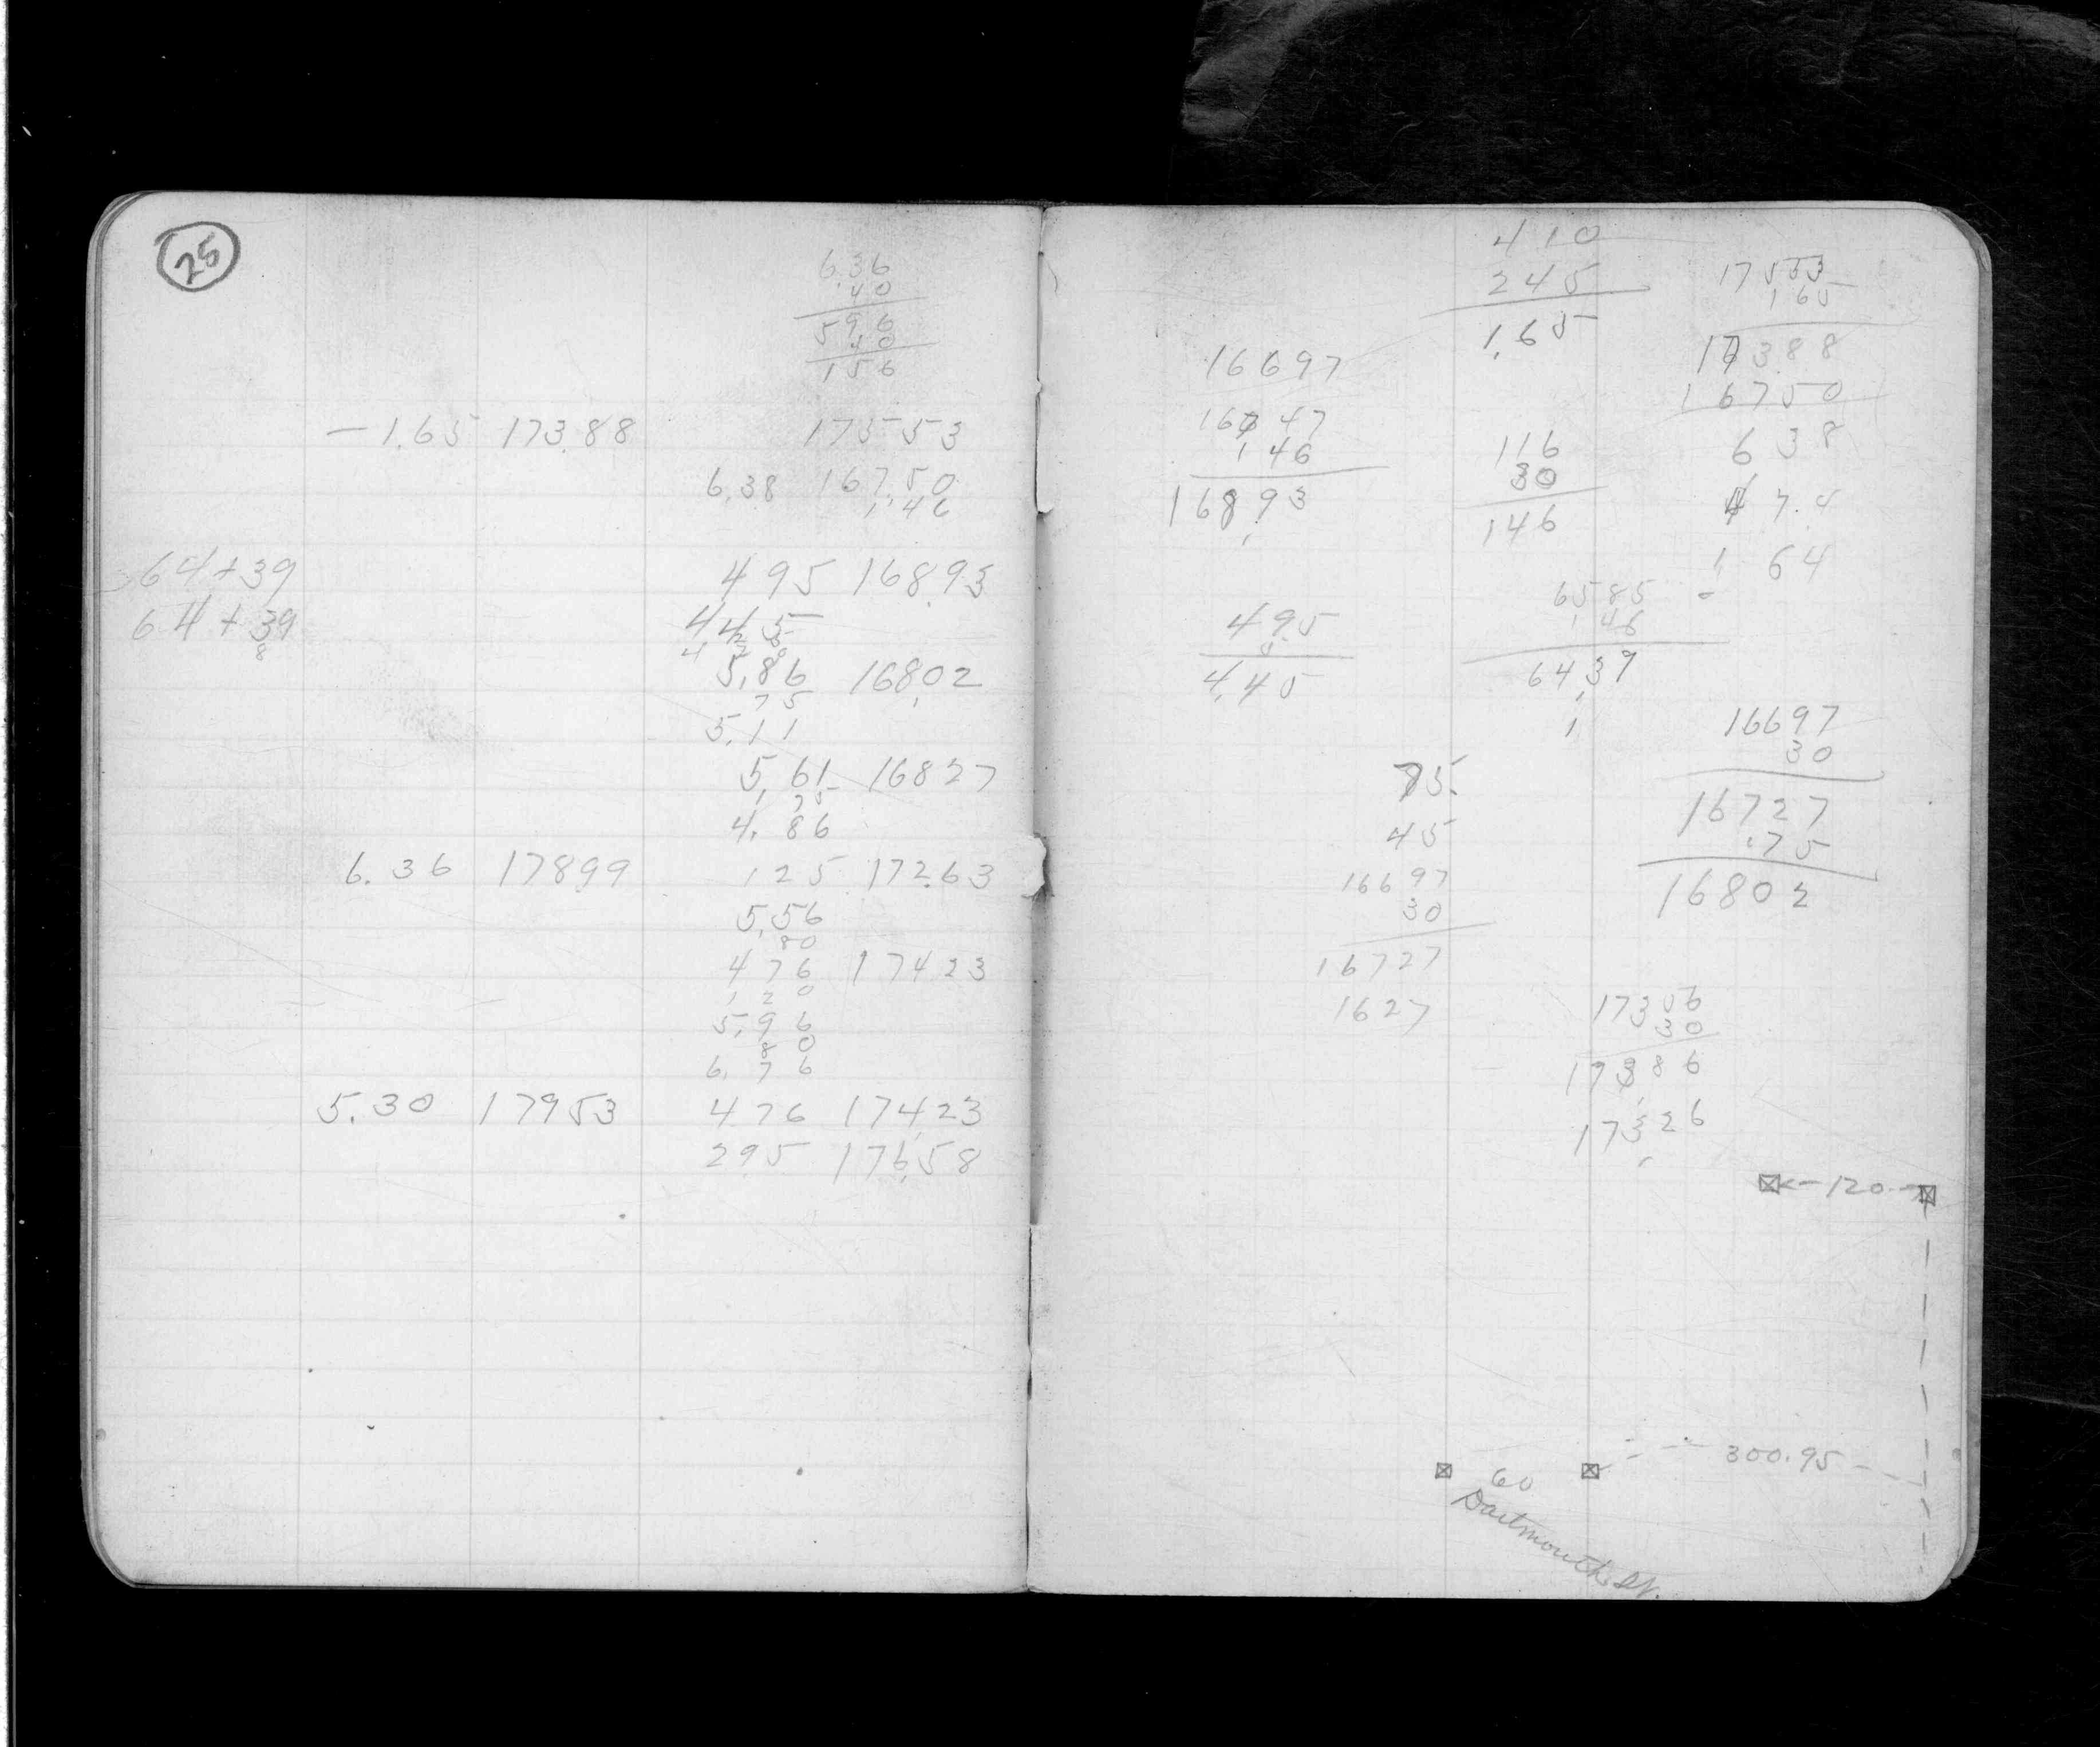 25
6.36
.40
5.96
40
156
-1.65 173.88 175.53
6.38 167.50
1.46
64+39 495 168.93
64+39 4 45
8
5.86 168.02
75
5.11
5.61 168 27
75
4.86
6.36 178.99 125 172.63
5.56
80
476 174 23
120
5.96
80
6.76
5.30 179 53 476 174.23
295 176.58
410
245
1.65
17553
165
17388
16750
638
475
1 64
16697
16747
146
16893
116
30
146
6585
146
6439
1
495
5
4.45
16697
30
16727
.75
16802
75.
45
16697
30
16727
1627
17356
30
17386
17326
120
300.95
60
Dartmouth St.